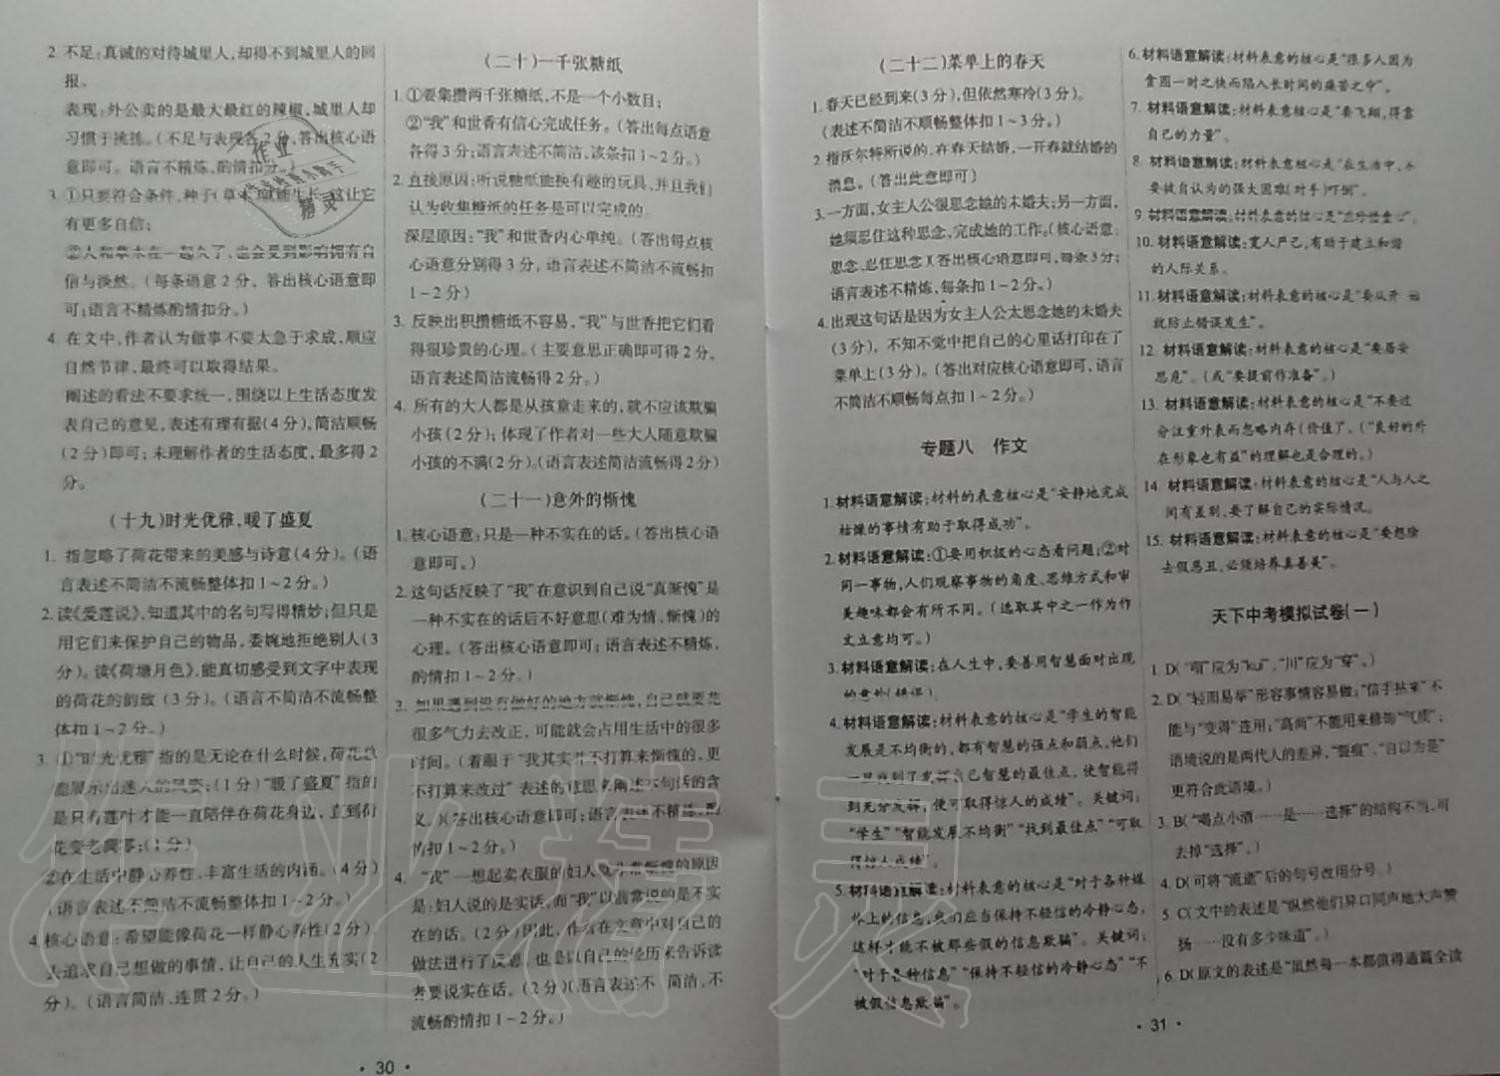 2. 不足:真诚的对待城里人,却得不到城里人的回
报。
表现:外公卖的是最大最红的辣椒,城里人却
习惯于挑拣。(不足与表现各2分,答出核心语
意即可。语言不精炼,酌情扣分。)
3. ①只要符合条件,种子(草木)就能生长,这让它
有更多自信;
②人和草木在一起久了,也会受到影响拥有自
信与淡然。(每条语意2分,答出核心语意即
可;语言不精炼酌情扣分。)
4. 在文中,作者认为做事不要太急于求成,顺应
自然节律,最终可以取得结果。
阐述的看法不要求统一,围绕以上生活态度发
表自己的意见,表述有理有据(4分),简洁顺畅
(2分)即可;未理解作者的生活态度,最多得2
分。
(十九)时光优雅,暖了盛夏
1. 指忽略了荷花带来的美感与诗意(4分)。(语
言表述不简洁不流畅整体扣1~2分。)
2. 读《爱莲说》,知道其中的名句写得精妙;但只是
用它们来保护自己的物品,委婉地拒绝别人(3
分)。读《荷塘月色》,能真切感受到文字中表现
的荷花的韵致(3分)。(语言不简洁不流畅整
体扣1~2分。)
3. ①“时光优雅”指的是无论在什么时候,荷花总
能展示出迷人的风姿;(1分)“暖了盛夏”指的
是只有莲叶才能一直陪伴在荷花身边,直到荷
花变老凋零;(1分)
②在生活中静心养性,丰富生活的内涵。(4分)
(语言表述不简洁不流畅整体扣1~2分。)
4. 核心语意:希望能像荷花一样静心养性(2分)
去追求自己想做的事情,让自己的人生充实(2
分)。(语言简洁,连贯2分。)
(二十)一千张糖纸
1. ①要集攒两千张糖纸,不是一个小数目;
②“我”和世香有信心完成任务。(答出每点语意
各得3分;语言表述不简洁,该条扣1~2分。)
2. 直接原因:听说糖纸能换有趣的玩具,并且我们
认为收集糖纸的任务是可以完成的。
深层原因:“我”和世香内心单纯。(答出每点核
心语意分别得3分,语言表述不简洁不流畅扣
1~2分)
3. 反映出积攒糖纸不容易,“我”与世香把它们看
得很珍贵的心理。(主要意思正确即可得2分,
语言表述简洁流畅得2分。)
4. 所有的大人都是从孩童走来的,就不应该欺骗
小孩(2分);体现了作者对一些大人随意欺骗
小孩的不满(2分)。(语言表述简洁流畅得2分)
(二十一)意外的惭愧
1. 核心语意:只是一种不实在的话。(答出核心语
意即可。)
2. 这句话反映了“我”在意识到自己说“真惭愧”是
一种不实在的话后不好意思(难为情,惭愧)的
心理。(答出核心语意即可;语言表述不精炼,
酌情扣1~2分。)
3. 如果遇到没有做好的地方就惭愧,自己就要花
很多气力去改正,可能就会占用生活中的很多
时间。(看眼于“我其实并不打算来惭愧的,更
不打算来改过”表述的意思来阐述本句话的含
义。)(答出核心语意即可;语言表述不精炼,酌
情扣1~2分。)
4. “我”一想起卖衣服的妇人就非常惭愧的原因
是:妇人说的是实话,而“我”以前常说的是不实
在的话。(2分)因此,作者在文章中对大人不实
做法进行了反思,也是以自己的经历来告诉读
者要说实在话。(2分)(语言表述不 简洁,不
流畅酌情扣1~2分。)
· 30 ·
(二十二)菜单上的春天
1. 春天已经到来(3分),但依然寒冷(3分)。
(表述不简洁不顺畅整体扣1~3分。)
2. 指沃尔特所说的,在春天结婚,一开春就结婚的
消息。(答出此意即可)
3. 一方面,女主人公很思念她的未婚夫;另一方面,
她须忍住这种思念,完成她的工作。(核心语意:
思念、忍住思念)(答出核心语意即可,每条3分;
语言表述不精炼,每条扣1~2分。)
4. 出现这句话是因为女主人公太思念她的未婚夫
(3分),不知不觉中把自己的心里话打印在了
菜单上(3分)。(答出对应核心语意即可,语言
不简洁不顺畅每点扣1~2分。)
专题八 作文
1. 材料语意解读:材料的表意核心是“安静地完成
枯燥的事情有助于取得成功”。
2. 材料语意解读:①要用积极的心态看问题;②对
同一事物,人们观察事物的角度、思维方式和审
美趣味都会有所不同。(选取其中之一作为作
文立意均可。)
3. 材料语意解读:在人生中,要善用智慧面对出现
的意外(错误)。
4. 材料语意解读:材料表意的核心是“学生的智能
发展是不均衡的,都有智慧的强点和弱点,他们
一旦找到了发挥自己智慧的最佳点,使智能得
到充分发挥,便可取得惊人的成绩”。关键词:
“学生”“智能发展不均衡”“找到最佳点”“可取
得惊人成绩”。
5. 材料语意解读:材料表意的核心是“对于各种媒
体上的信息,我们应当保持不轻信的冷静心态,
这样才能不被那些假的信息欺骗”。关键词:
“对于各种信息”“保持不轻信的冷静心态”“不
被假信息欺骗”。
6. 材料语意解读:材料表意的核心是“很多人因为
贪图一时之快而陷入长时间的痛苦之中”。
7. 材料语意解读:材料表意的核心是“要飞翔,得靠
自己的力量”。
8. 材料语意解读:材料表意的核心是“在生活中,不
要被自认为的强大困难(对手)吓倒”。
9. 材料语意解读:材料表意的核心是
10. 材料语意解读:宽人严己,有助于建立和谐
的人际关系。
11. 材料语意解读:材料表意的核心是“要从开 始
就防止错误发生”。
12. 材料语意解读:材料表意的核心是“要居安
思危”。(或“要提前作准备”。)
13. 材料语意解读:材料表意的核心是“不要过
分注重外表而忽略内存(价值了。(“良好的外
在形象也有益”的理解也是合理的。)
14. 材料语意解读:材料表意的核心是“人与人之
间有差别,要了解自己的实际情况。
15. 材料语意解读:材料表意的核心是“要想除
去假恶丑,必须培养真善美”。
天下中考模拟试卷(一)
1. D(“喟”应为“kuì”,“川”应为“穿”。)
2. D(“轻而易举”形容事情容易做;“信手拈来”不
能与“变得”连用;“高尚”不能用来修饰“气质”;
语境说的是两代人的差异,“暂痕”,“自以为是”
更符合此语境。)
3. B(“喝点小酒……是……选择”的结构不当,可
去掉“选择”。)
4. D(可将“流逝”后的句号改用分号。)
5. C(文中的表述是“纵然他们异口同声地大声赞
扬……没有多少味道”。)
6. D(原文的表述是“虽然每一本都值得通篇全读
· 31 ·
作业精灵
作业
精灵